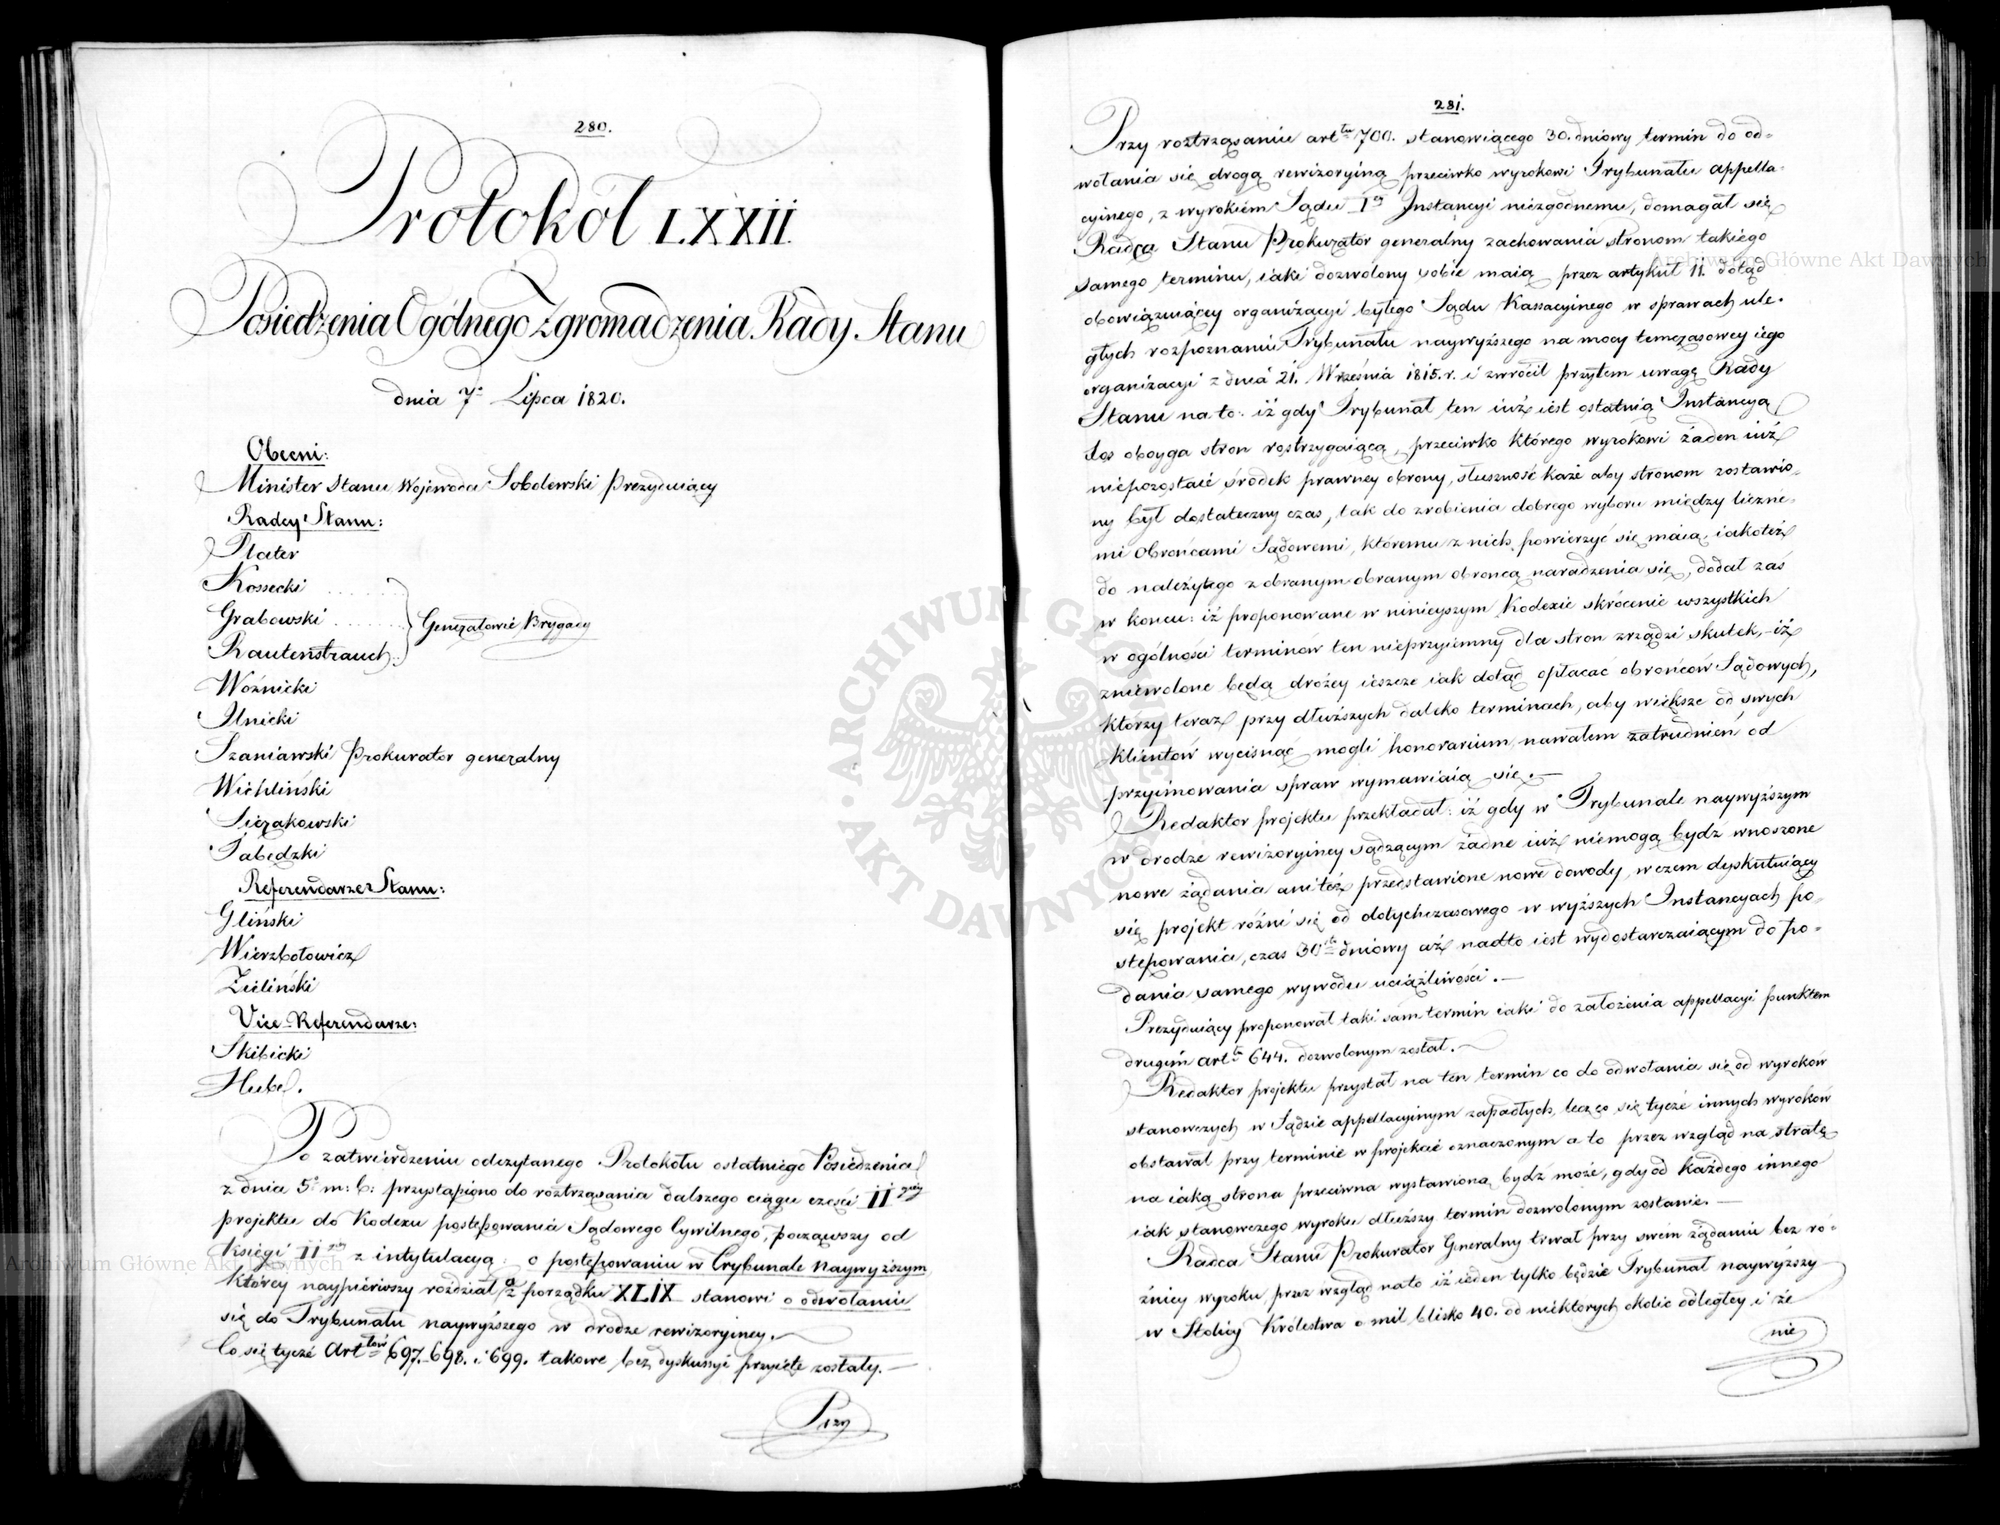 280.
Protokół LXXII.
Posiedzenia Ogólnego Zgromadzenia Rady Stanu
dnia 7º Lipca 1820.
Obecni:
Minister Stanu Wojewoda Sobolewski Prezyduiący
Radcy Stanu:
Plater
Kossecki
Grabowski
Generałowie Brygady
Rautenstrauch
Woźnicki
Ilnicki
Szaniawski Prokurator generalny
Wichliński
Sierakowski
Łabędzki
Referendarze Stanu:
Gliński
Wierzbołowicz
Zieliński
Vice-Referendarze:
Skibicki
Hube.
Po zatwierdzeniu odczytanego Protokołu ostatniego Posiedzenia
z dnia 5º m: b: przystąpiono do roztrząsania dalszego ciągu części II giéy
projektu do Kodexu postępowania Sądowego Cywilnego, począwszy od
Księgi II giéy z intytulacyą: o postępowaniu w Trybunale Naywyższym,
którey naypierwszy rozdział a z porządku XLIX stanowi o odwołaniu
się do Trybunału naywyższego w drodze rewizoryiney.
Co się tycze Art tów 697. 698. i 699. takowe bez dyskussyi przyięte zostały.—
Przy
281.
Przy roztrząsaniu art tu 700. stanowiącego 30. dniowy termin do od-
wołania się drogą rewizoryiną przeciwko wyrokowi Trybunału appella-
cyinego, z wyrokiem Sądu I ey Instancyi niezgodnemu, domagał się
Radca Stanu Prokurator generalny zachowania stronom takiego
samego terminu, iaki dozwolony sobie maią przez artykuł 11. dotąd
obowiązuiącey organizacyi byłego Sądu Kassacyinego w sprawach ule-
głych rozpoznaniu Trybunału naywyższego na mocy temczasowey iego
organizacyi z dnia 21. Września 1815. r. i zwrócił przytem uwagę Rady
Stanu na to: iż gdy Trybunał ten iuż iest ostatnią Instancyą
los oboyga stron rostrzygaiącą, przeciwko którego wyrokowi żaden iuż
niepozostaie środek prawney obrony, słuszność każe aby stronom zostawio-
ny był dostateczny czas, tak do zrobienia dobrego wyboru między liczne-
mi Obrońcami Sądowemi, któremu z nich powierzyć się maią, iakoteż
do należytego z obranym obranym obrońcą naradzenia się, dodał zaś
w końcu: iż proponowane w ninieyszym Kodexie skrócenie wszystkich
w ogólności terminów ten nieprzyiemny dla stron zrządzi skutek, iż
zniewolone będą drożey ieszcze iak dotąd opłacać obrońców Sądowych,
którzy teraz przy dłuższych daleko terminach, aby większe od swych
klientów wycisnąć mogli honorarium, nawałem zatrudnień od
przyimowania spraw wymawiaią się.—
Redaktor projektu przekładał: iż gdy w Trybunale naywyższym
w drodze rewizoryiney sądzącym żadne iuż niemogą bydz wnoszone
nowe żądania ani też przedstawione nowe dowody, w czem dyskutuiący
się projekt różni się od dotychczasowego w wyższych Instancyach po-
stępowania, czas 30 sto dniowy aż nadto iest wydostarczaiącym do po-
dania samego wywodu uciążliwości.—
Prezyduiący proponował taki sam termin iaki do założenia appellacyi punktem
drugim art tu 644. dozwolonym został.—
Redaktor projektu przystał na ten termin co do odwołania się od wyroków
stanowczych w Sądzie appellacyinym zapadłych, lecz co się tycze innych wyroków
obstawał przy terminie w projekcie oznaczonym a to przez wzgląd na stratę
na iaką strona przeciwna wystawioną bydz może, gdy od każdego innego
iak stanowczego wyroku dłuższy termin dozwolonym zostanie.—
Radca Stanu Prokurator Generalny trwał przy swém żądaniu bez ró-
żnicy wyroku przez wzgląd na to iż ieden tylko będzie Trybunał naywyższy
w Stolicy Królestwa o mil blisko 40. od niektórych okolic odległey i że
nie
Archiwum Główne Akt Dawnych
Archiwum Główne Akt Dawnych
ARCHIWUM GŁÓWNE AKT DAWNYCH